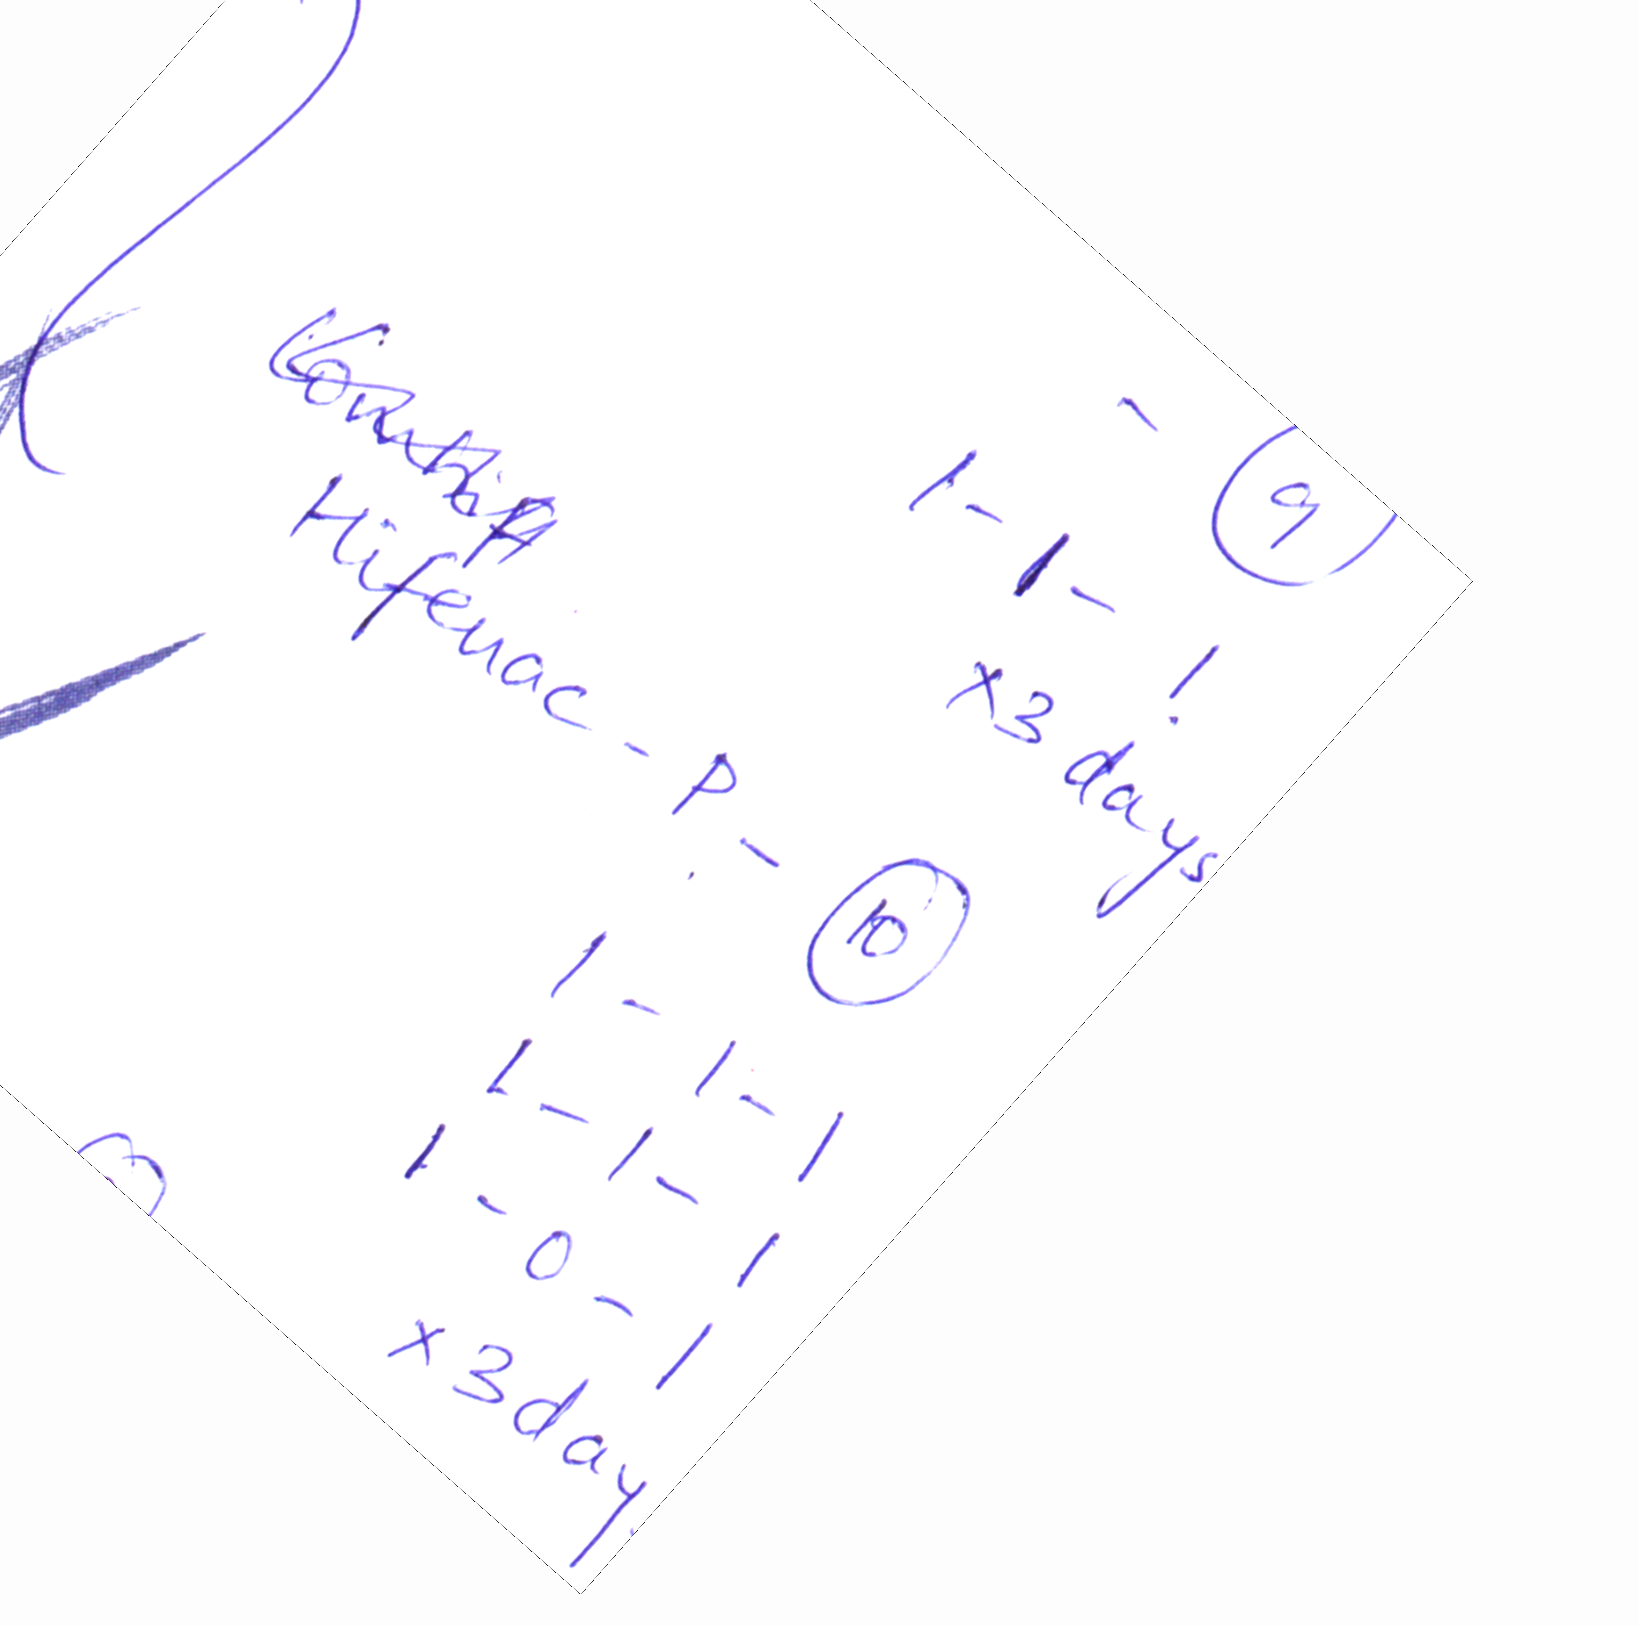 - 9
1-1-1
x3 days
Hifenac-P-10
1-1-1
1-1-1
1-0-1
x3day